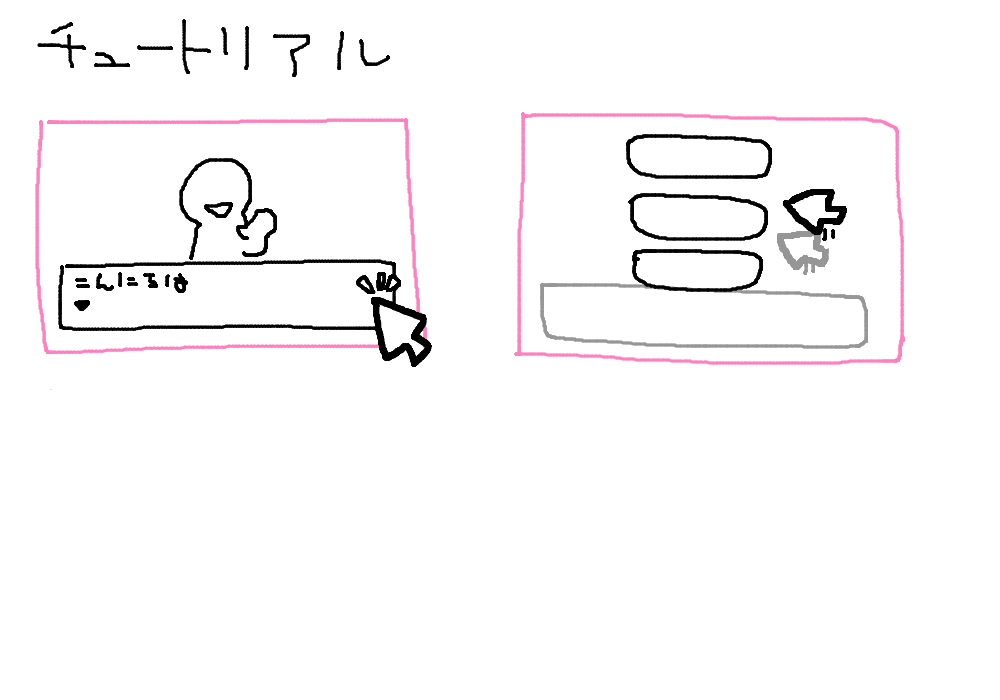 チュートリアル
こんにちは